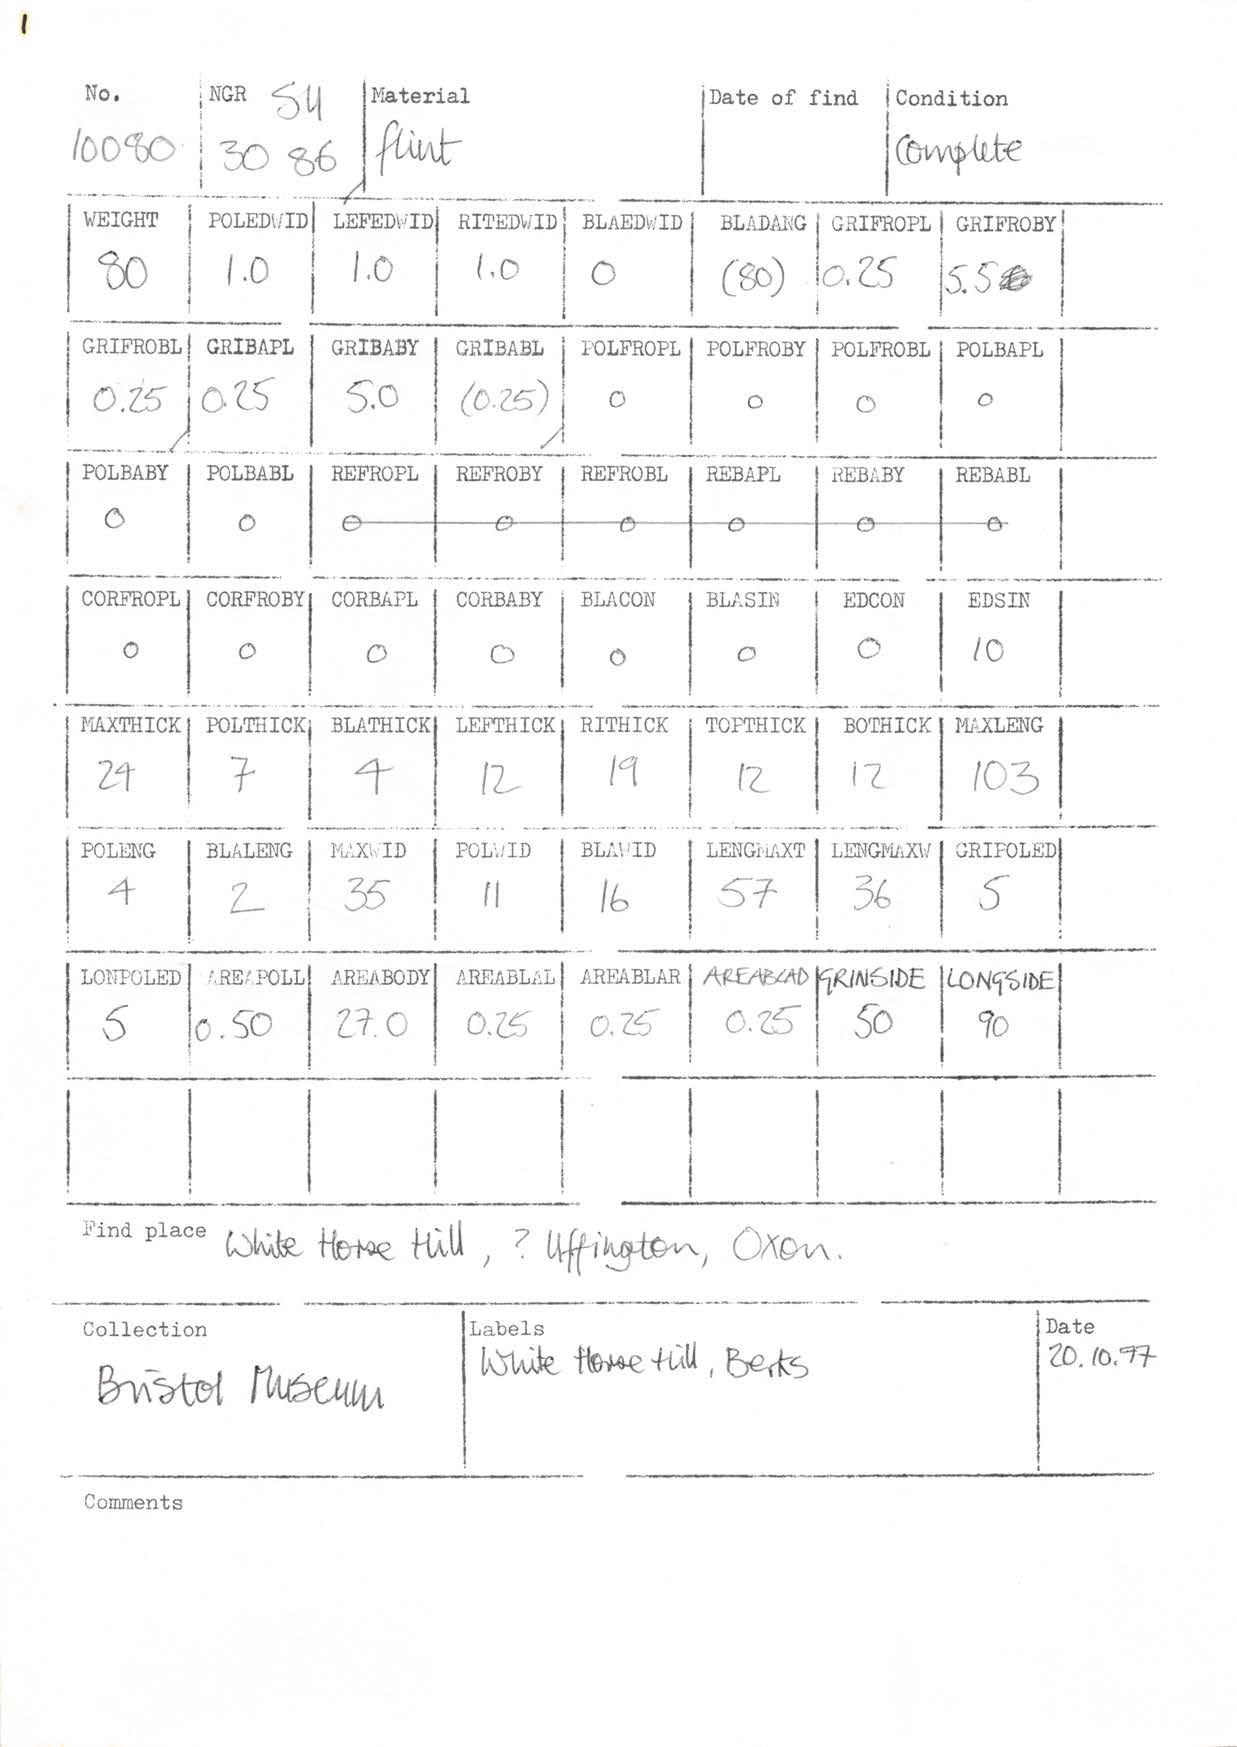 1
No. NGR SU Material Date of find Condition
10080 30 86 flint complete
WEIGHT POLEDWID LEFEDWID RITEDWID BLAEDWID BLADANG GRIFROPL GRIFROBY
80 1.0 1.0 1.0 0 (80) 0.25 5.5
GRIFROBL GRIBAPL GRIBABY GRIBABL POLFROPL POLFROBY POLFROBL POLBAPL
0.25 0.25 5.0 (0.25) 0 0 0 0
POLBABY POLBABL REFROPL REFROBY REFROBL REBAPL REBABY REBABL
0 0 0 0 0 0 0 0
CORFROPL CORFROBY CORBAPL CORBABY BLACON BLASIN EDCON EDSIN
0 0 0 0 0 0 0 10
MAXTHICK POLTHICK BLATHICK LEFTHICK RITHICK TOPTHICK BOTHICK MAXLENG
24 7 4 12 19 12 12 103
POLENG BLALENG MAXWID POLWID BLAWID LENGMAXT LENGMAXW GRIPOLED
4 2 35 11 16 57 36 5
LONPOLED AREAPOLL AREABODY AREABLAL AREABLAR AREABLAD GRINSIDE LONGSIDE
5 0.50 27.0 0.25 0.25 0.25 50 90
Find place White Horse Hill, ? Uffington, Oxon.
Collection Labels Date
Bristol Museum White Horse Hill, Berks 20.10.77
Comments